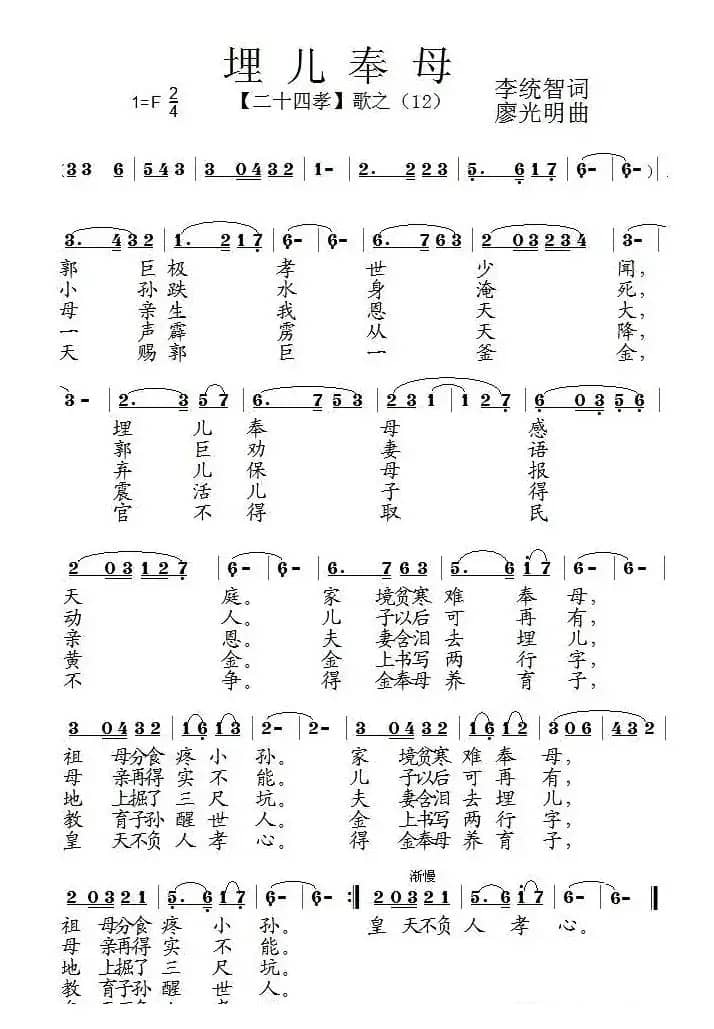 埋儿奉母
1=F 2/4 【二十四孝】歌之（12） 李统智词
廖光明曲
(33 6 | 543 | 3 0432 | 1- | 2. 223 | 5. 617 | 6- | 6- ) |
3. 432 | 1. 217 | 6- | 6- | 6. 763 | 2 03234 | 3- |
郭巨极孝世少闻，
小孙跌水身淹死，
母亲生我恩天大，
一声霹雳从天降，
天赐郭巨一釜金，
3- | 2. 3 57 | 6. 753 | 231 | 127 | 6 0356 |
埋儿奉母感
郭巨劝妻语
弃儿保母报
震活儿子得
官不得取民
2 03127 | 6- | 6- | 6. 763 | 5. 617 | 6- | 6- |
天庭。家境贫寒难奉母，
动人。儿子以后可再有，
亲恩。夫妻含泪去埋儿，
黄金。金上书写两行字，
不争。得金奉母养育子，
3 0432 | 1613 | 2- | 2- | 3 0432 | 1612 | 306 | 432 |
祖母分食疼小孙。家境贫寒难奉母，
母亲再得实不能。儿子以后可再有，
地上掘了三尺坑。夫妻含泪去埋儿，
教育子孙醒世人。金上书写两行字，
皇天不负人孝心。得金奉母养育子，
渐慢
2 0321 | 5. 617 | 6- | 6- :‖ 2 0321 | 5. 617 | 6- | 6- ‖
祖母分食疼小孙。皇天不负人孝心。
母亲再得实不能。
地上掘了三尺坑。
教育子孙醒世人。